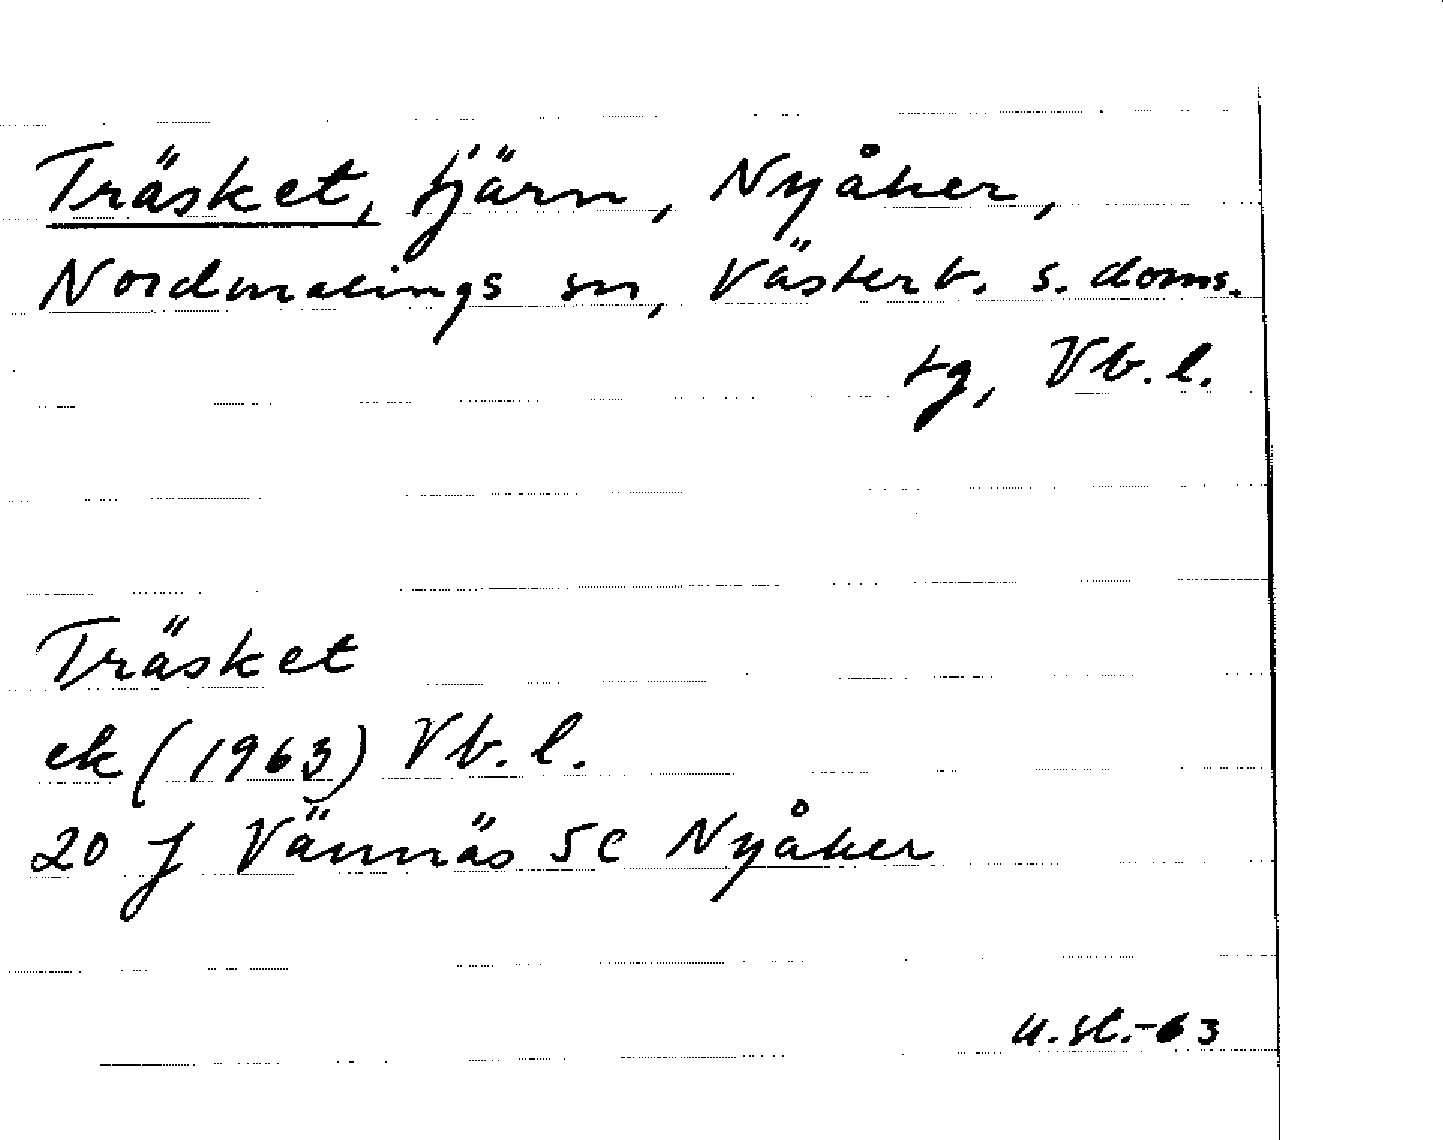 Träsket, tjärn, Nyåker,
Nordmalings sn, Västerb. s. doms.
tg, Vb. l.
Träsket
ek (1963) Vb. l.
20 J Vännäs 5c Nyåker
u.st.-63